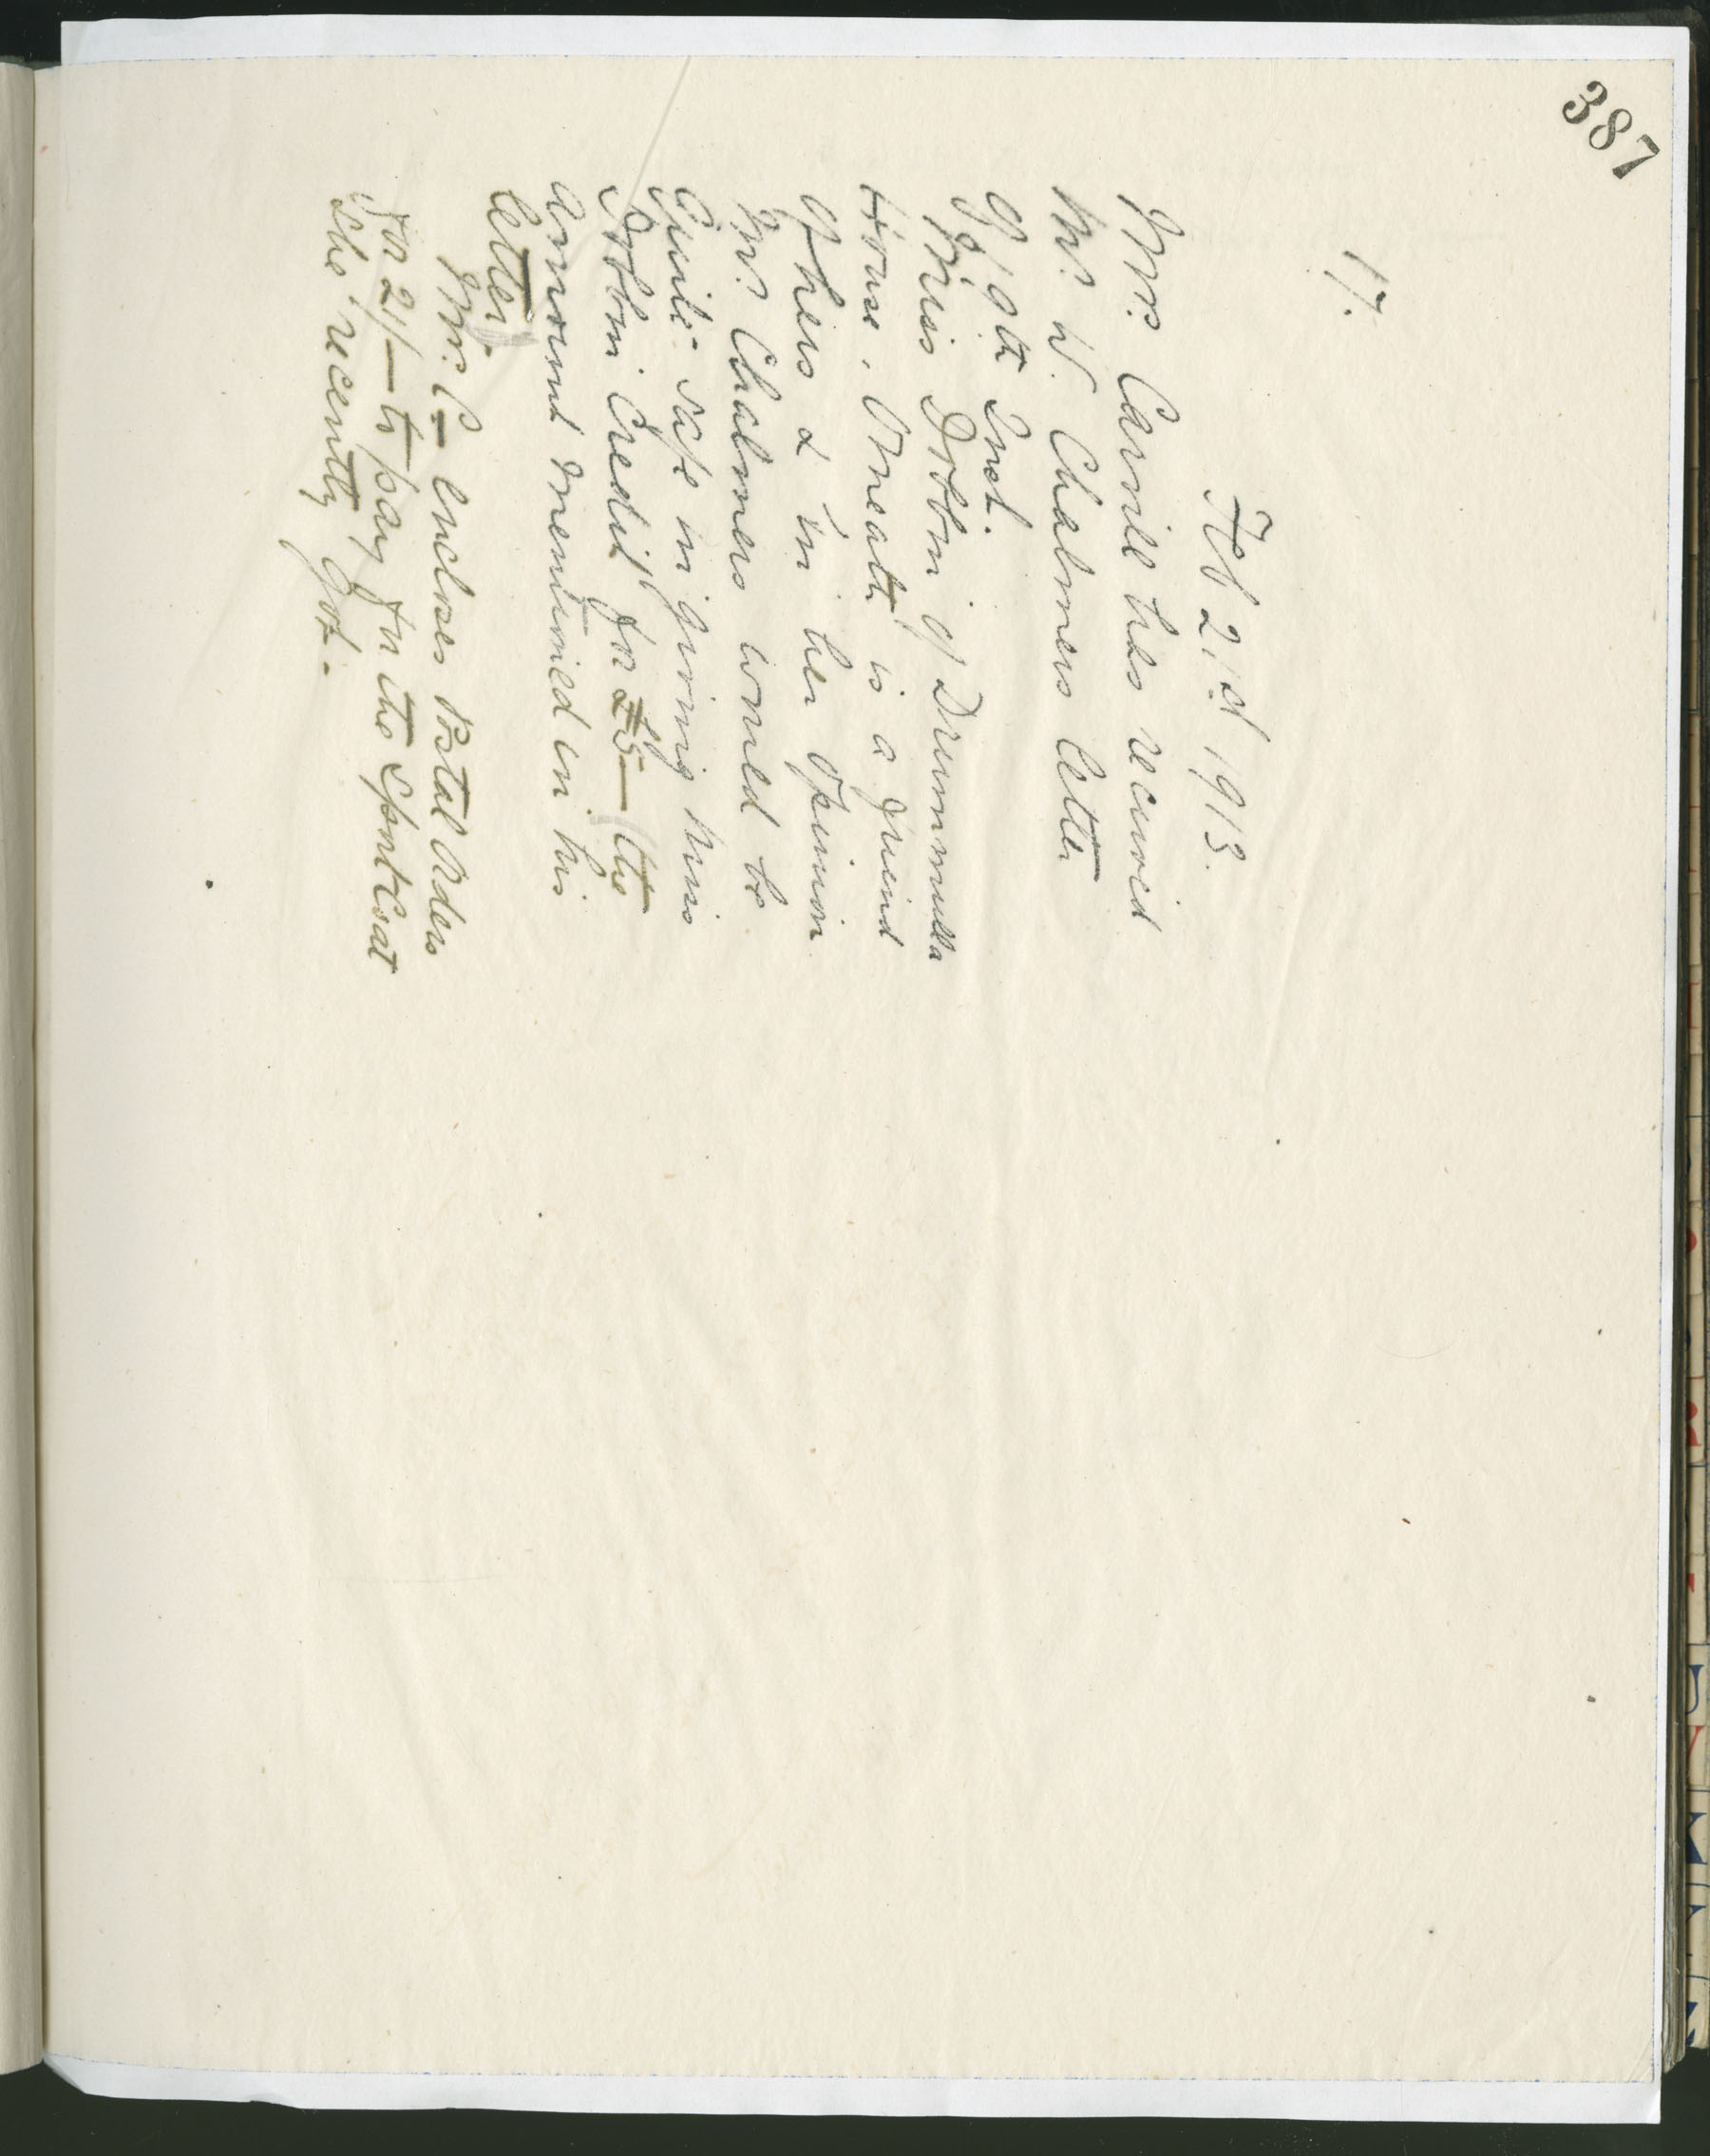 387
17.
Feb 21st 1913.
Mrs. Carvill has received
Mr. W. Chalmers letter
of 19th Inst.
Miss Dobbin of Drummulla
House, Omeath is a friend
of hers & in her opinion
Mr. Chalmers would be
Quite safe in giving Miss
Dobbin Credit for £5 — the
amount mentioned in his
letter.
Mrs. C— encloses Postal Orders
for 21/— to pay for the Sports Coat
she recently got.